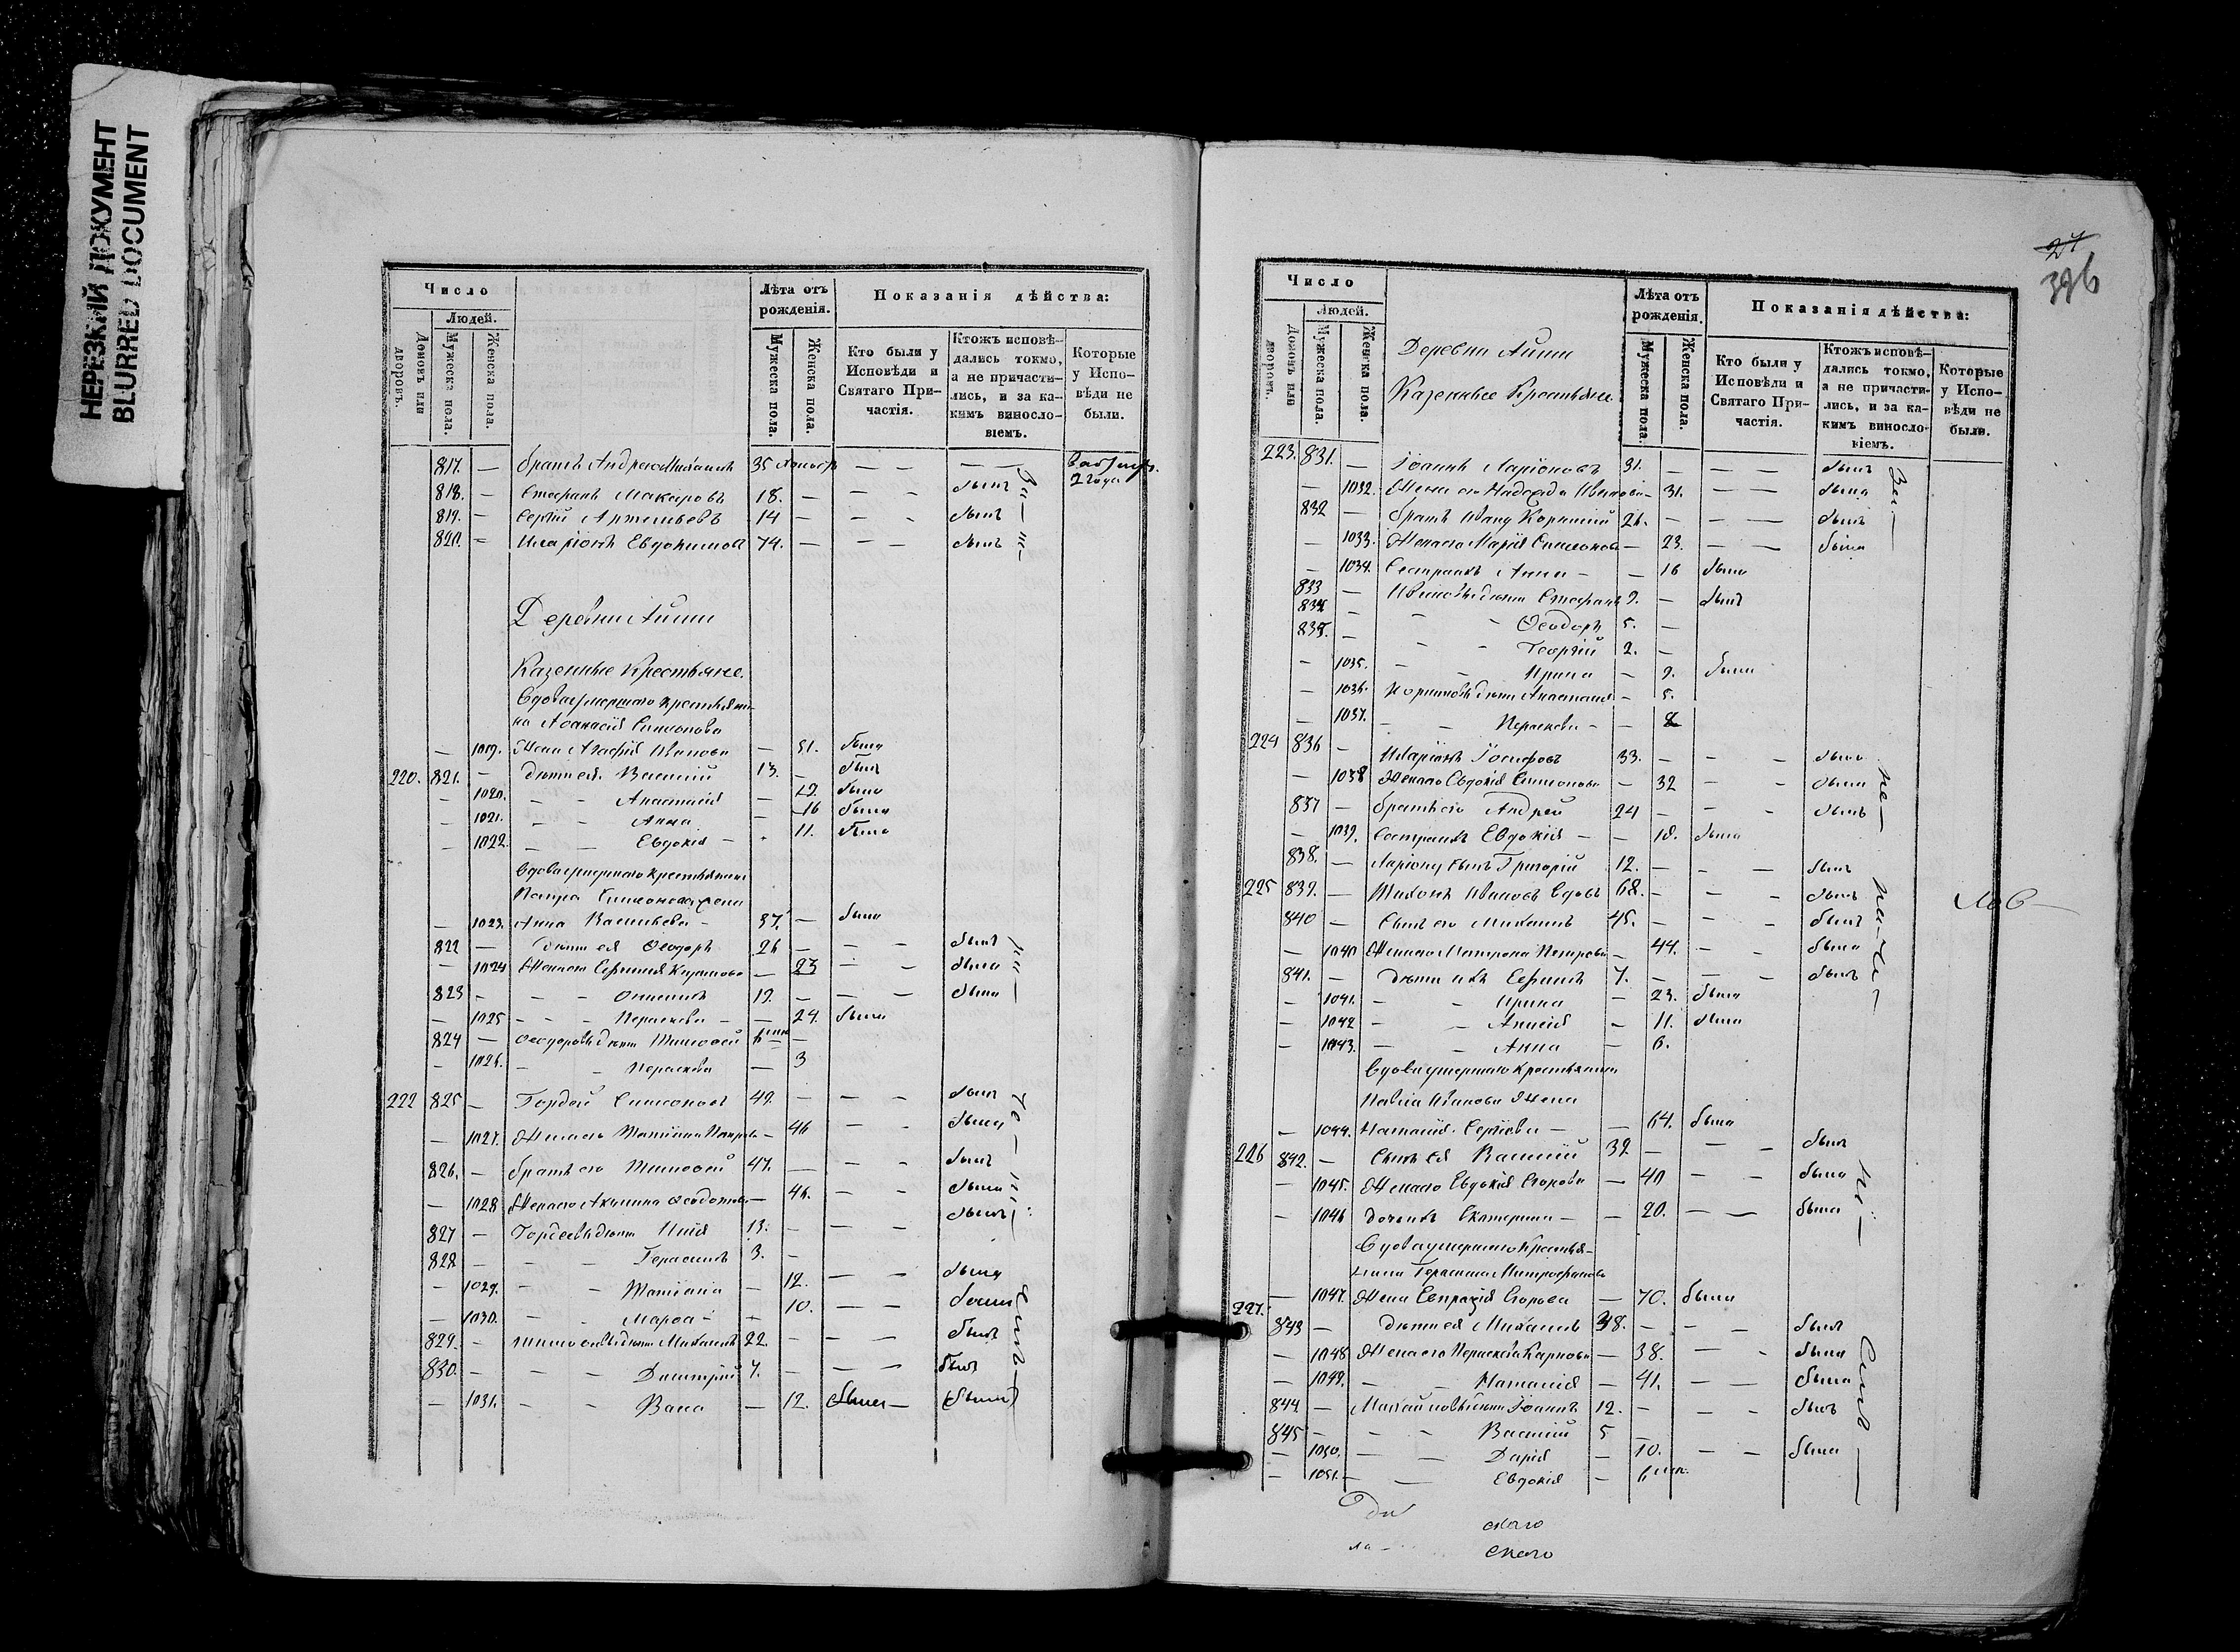 НЕРЕЗКИЙ ДОКУМЕНТ
BLURRED DOCUMENT
Число
Людей.
Домовъ или дворовъ.
Мужеска пола.
Женска пола.
Лѣта отъ рожденія.
Мужеска пола.
Женска пола.
Показанія дѣйства:
Кто были у Исповѣди и Святаго Причастія.
Ктожъ исповѣдались токмо, а не причастились, и за какимъ винословіемъ.
Которые у Исповѣди не были.
817. — братъ Андрей Михаиловъ 35 — — — —
2 года
818. — Стефанъ Макаровъ 18. — — — былъ
819. — Сергій Артемьевъ 14 — — — былъ
820. — Иларіонъ Евдокимовъ 74. — — — былъ
Деревни
Казенные Крестьяне.
Вдова умершаго крестьяни-
на Аѳанасія Симеонова
— 1019. Жена Агафія Иванова — 51. была
220. 821. — дѣти ея Василій 13. — былъ
— 1020. — — Анастасія — 19. была
— 1021. — — Анна — 16 была
— 1022. — — Евдокія — 11. была
Вдова умершаго крестьянина
Петра Симеонова жена
— 1023. Анна Васильева — 57. — была
822 — дѣти ея Ѳеодоръ 26 — — — былъ
— 1024 Жена его — 23 — — была
823 — — — 19. — — — была
— 1025 — — — Параскева — — 24. была
824 — Ѳеодоровы дѣти Тимоѳей
— 1026. — — Параскева — 3
222 825 — Гордей Симеоновъ 49. — — — былъ
— 1027. Жена его Татіана Петрова — 46 — — была
826. — братъ его Тимоѳей 47. — — — былъ
— 1028 Жена его Акилина Ѳеодотова — 46. — — была
827 — Гордеевы дѣти Илія 13. — — — былъ
828 — — — Герасимъ 3. —
— 1029. — — Татіана — 12. — — была
— 1030. — — Марѳа — — 10. — — была
829. — Тимоѳеевы дѣти Михаилъ 22. — — — былъ
830. — — — Димитрій 7. — — — былъ
— 1031. — — Васса — 12. была — (была)
24
Число
Людей.
Домовъ или дворовъ.
Мужеска пола.
Женска пола.
Деревни
Казенные Крестьяне.
Лѣта отъ рожденія.
Мужеска пола.
Женска пола.
Показанія дѣйства:
Кто были у Исповѣди и Святаго Причастія.
Ктожъ исповѣдались токмо, а не причастились, и за какимъ винословіемъ.
Которые у Исповѣди не были.
223. 831. — Іоаннъ Ларіоновъ 31. — — — былъ
— 1032. Жена его Надежда Иванова — 31. — — была
832 — братъ Ивану Корнилій 26. — — — былъ
— 1033. Жена его Марія Симеонова — 23. — — была
— 1034. Сестра ихъ Анна — — 16 была
833 — Ивановы дѣти Стефанъ 9. — былъ
834 — — — Ѳеодоръ 5. —
835. — — — Георгій 2. —
— 1035. — — Ирина — 9. была
— 1036. Корниловы дѣти Анастасія — 5.
— 1037. — — Параскева — — 2
224 836 — Иларіонъ Іосифовъ 33. — — — былъ
— 1038 Жена его Евдокія Симеонова — 32 — — была
837 — братъ его Андрей 24 — — — былъ
— 1039. Сестра ихъ Евдокія — — 18. была
838. — Ларіону сынъ Григорій 12. — — — былъ
225 839. — Тихонъ Ивановъ вдовъ 68. — — — былъ
840 — Сынъ его Михаилъ 45. — — — былъ
— 1040 Жена его Матрона Петрова — 44. — — была
841. — дѣти ихъ 7. — — — былъ
— 1041. — — Ирина — 23. была
— 1042 — — Анисія — 11. была
— 1043. — — Анна — 6.
Вдова умершаго крестьянина
Павла Иванова жена
— 1044. Наталія Сергіева — — 64. была
226 842. — Сынъ ея Василій 39. — — — былъ
— 1045. Жена его Евдокія Егорова — 40 — — была
— 1046 дочь ихъ Екатерина — — 20. — — была
Вдова умершаго Крестья-
нина Герасима Митрофанова
— 1047. Жена Евпраксія Егорова — 70. была
227. 843 — дѣти ея Михаилъ 38. — — — былъ
— 1048 Жена его Параскева Карпова — 38. — — была
— 1049. — — Наталія — 41. — — была
844. — Михайловы дѣти Іоаннъ 12. — — — былъ
845 — — — Василій 5 —
— 1050. — — Дарія — 10. — — была
— 1051. — — Евдокія — 6
ского
ского